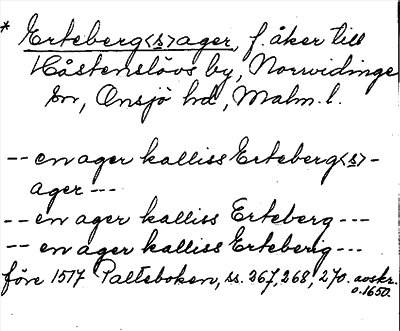 * Erteberg<s>ager, f. åker till
Håstenslövs by, Norrvidinge
sn, Onsjö hd, Malm. l.
-- en ager kalliss Erteberg<s>-
ager ---
-- en ager kalliss Erteberg ---
-- en ager kalliss Erteberig ---
före 1517 Palteboken, ss. 367, 268, 270. avskr.
o. 1650.